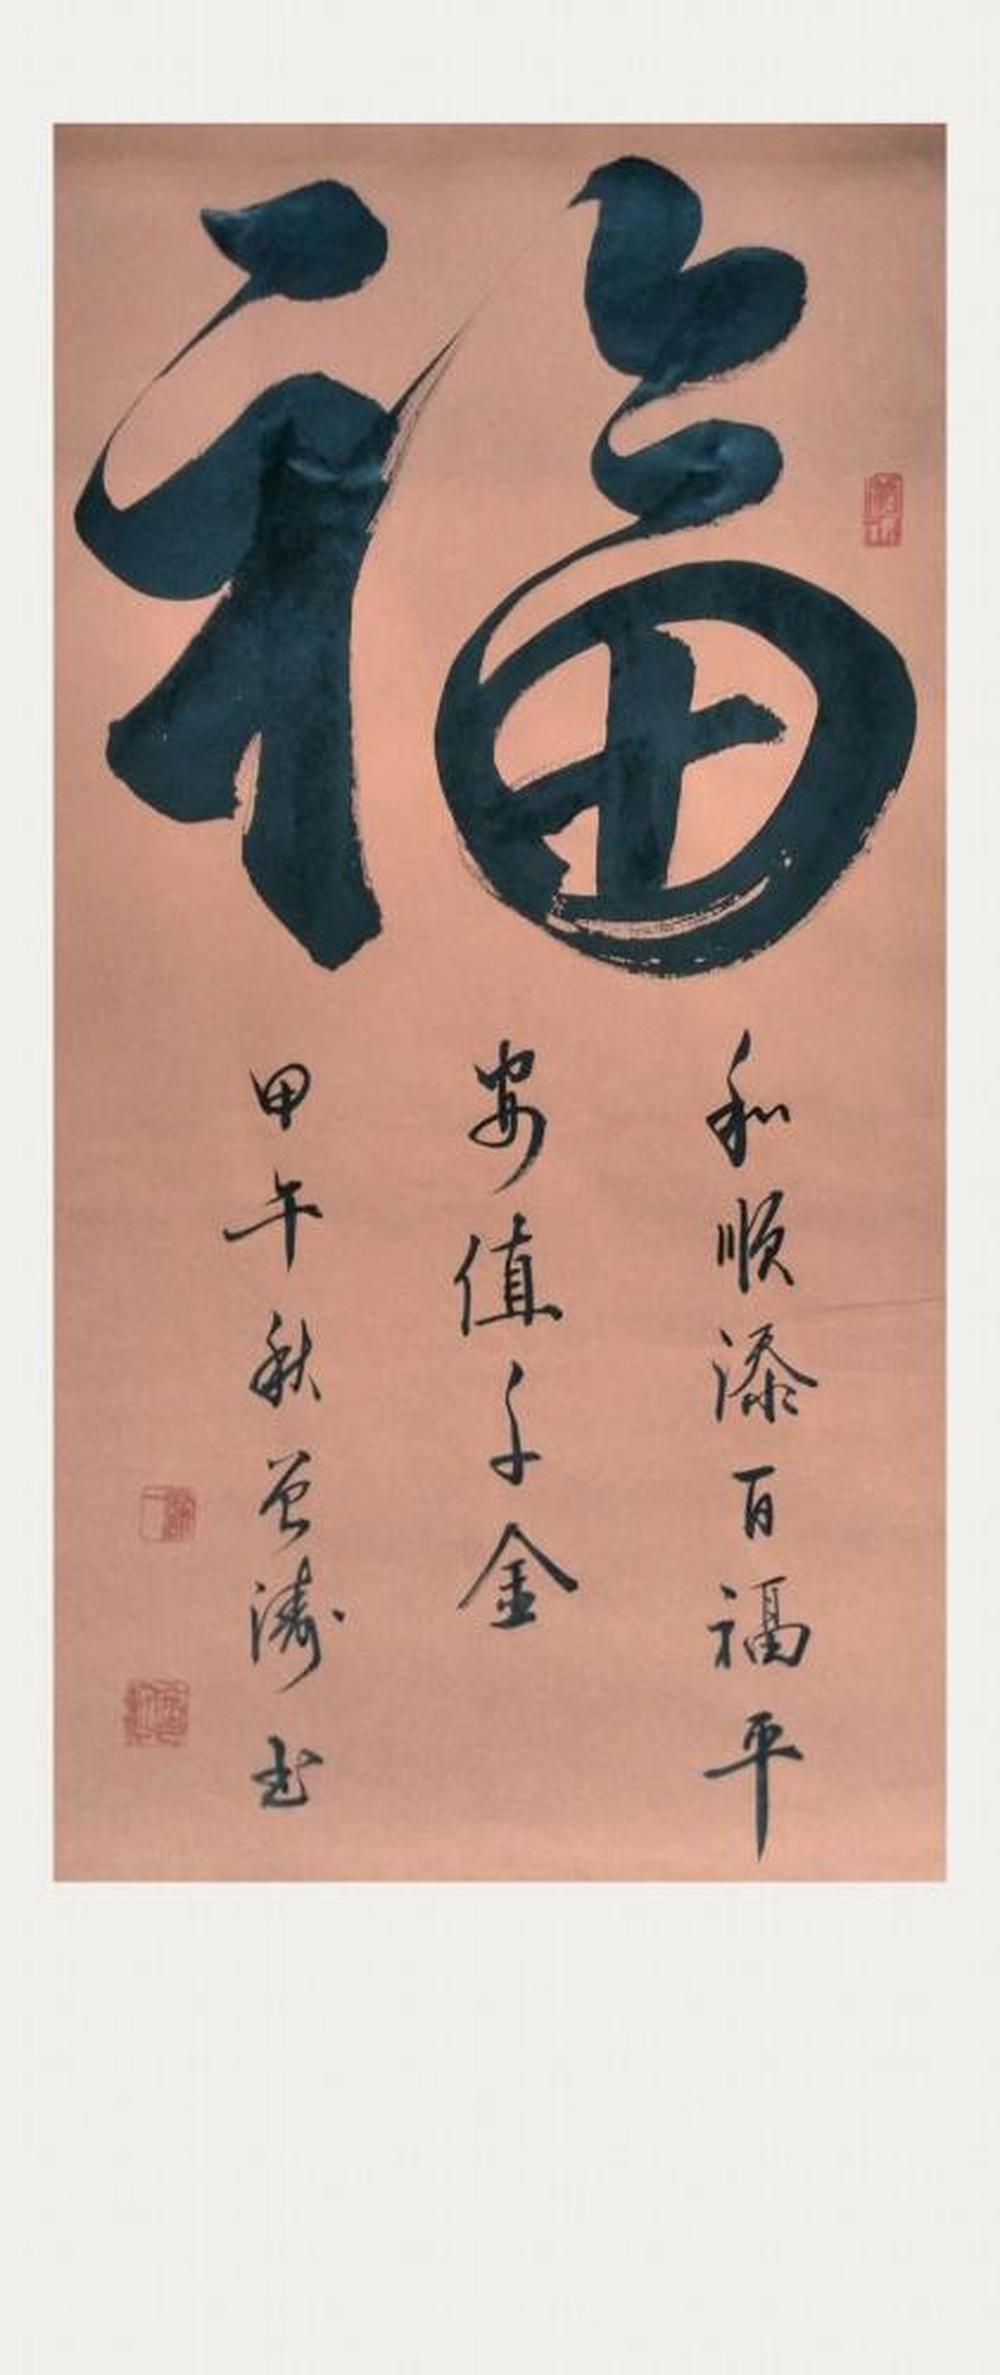 福
和顺添百福平
安值千金
甲午秋曾涛书